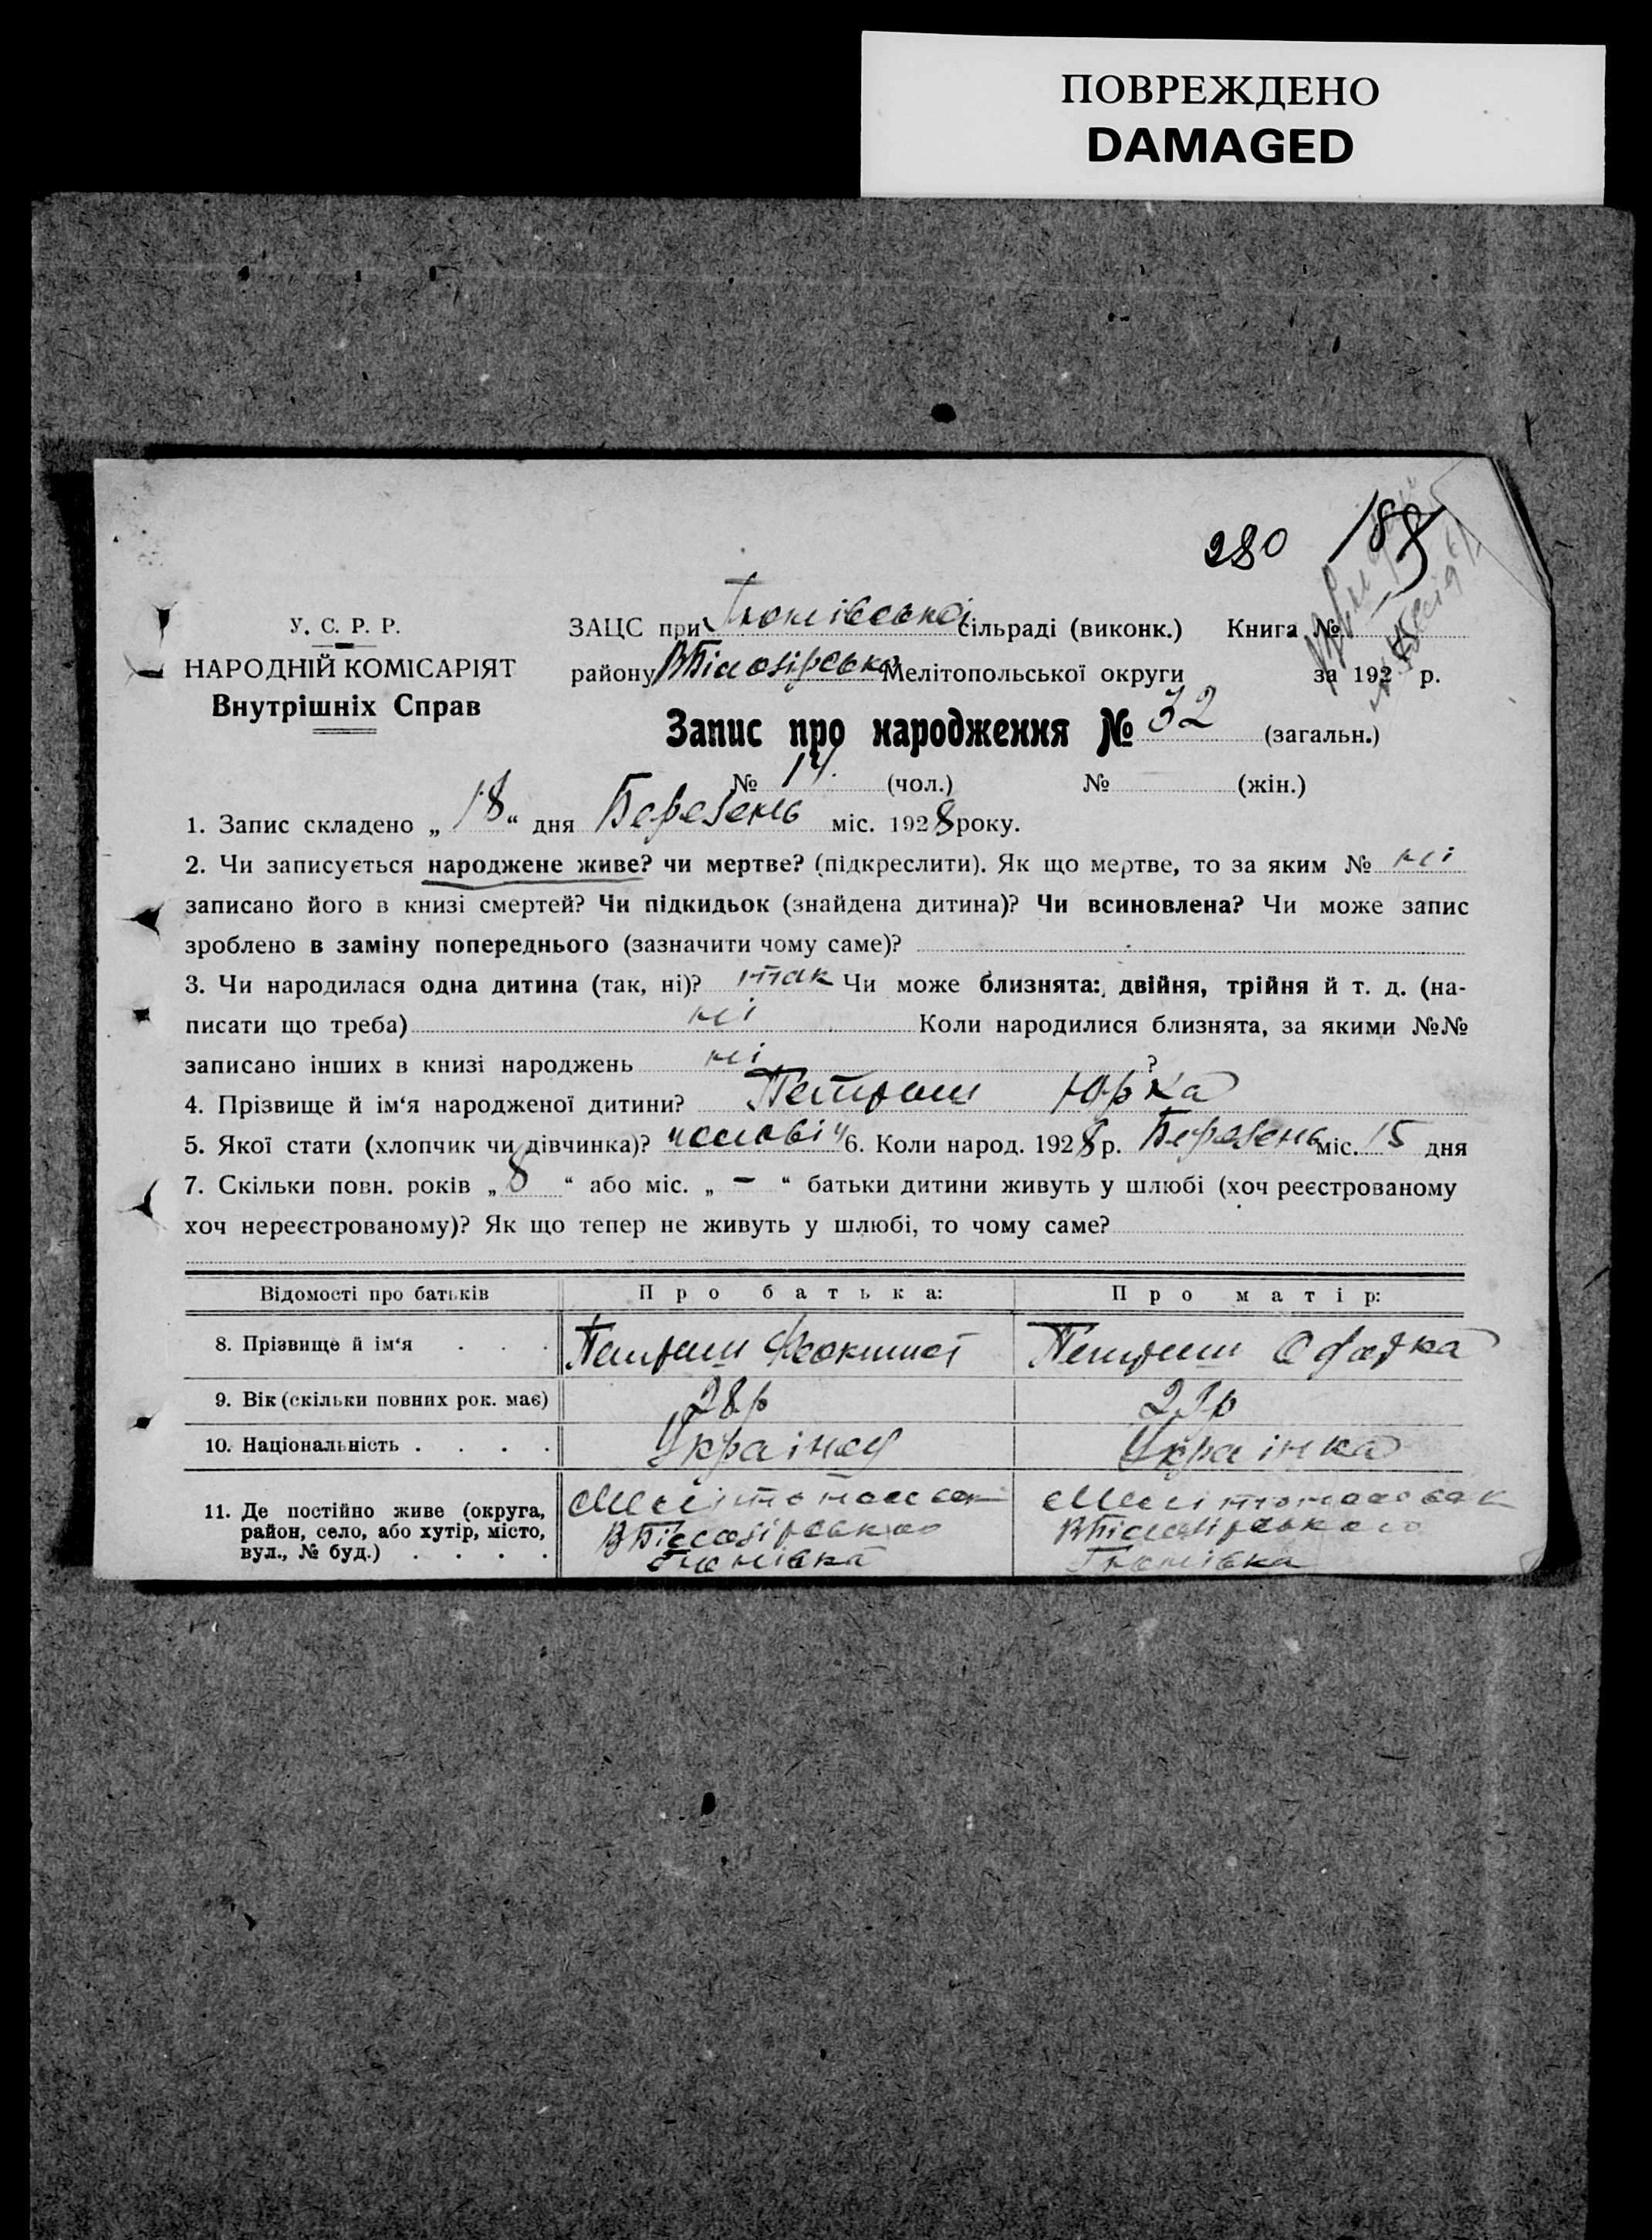 ПОВРЕЖДЕНО
DAMAGED
280 188
У. С. Р. Р.
НАРОДНІЙ КОМІСАРІЯТ
Внутрішніх Справ
ЗАЦС при сільраді (виконк.) Книга №
району ВБілозірсько Мелітопольської округи за 192 р.
Запис про народження № 32 (загальн.)
№ 14 (чол.) № (жін.)
1. Запис складено „ 18 “ дня Березень міс. 1928 року.
2. Чи записується народжене живе? чи мертве? (підкреслити). Як що мертве, то за яким № ні
записано його в книзі смертей? Чи підкидьок (знайдена дитина)? Чи всиновлена? Чи може запис
зроблено в заміну попереднього (зазначити чому саме)?
3. Чи народилася одна дитина (так, ні)? так Чи може близнята: двійня, трійня й т. д. (на-
писати що треба) ні Коли народилися близнята, за якими №№
записано інших в книзі народжень ні ?
4. Прізвище й ім‘я народженої дитини? Петраш Юрка
5. Якої стати (хлопчик чи дівчинка)? 6. Коли народ. 1928 р. Березень міс. 15 дня
7. Скільки повн. років „ 8 “ або міс. „ – “ батьки дитини живуть у шлюбі (хоч реєстрованому
хоч нереєстрованому)? Як що тепер не живуть у шлюбі, то чому саме?
Відомості про батьків Про батька: Про матір:
8. Прізвище й ім‘я . . . Петраш Петраш
9. Вік (скільки повних рок. має) 28р
10. Національність . . . . Українец Українка
11. Де постійно живе (округа,
район, село, або хутір, місто,
вул., № буд.) . . . .